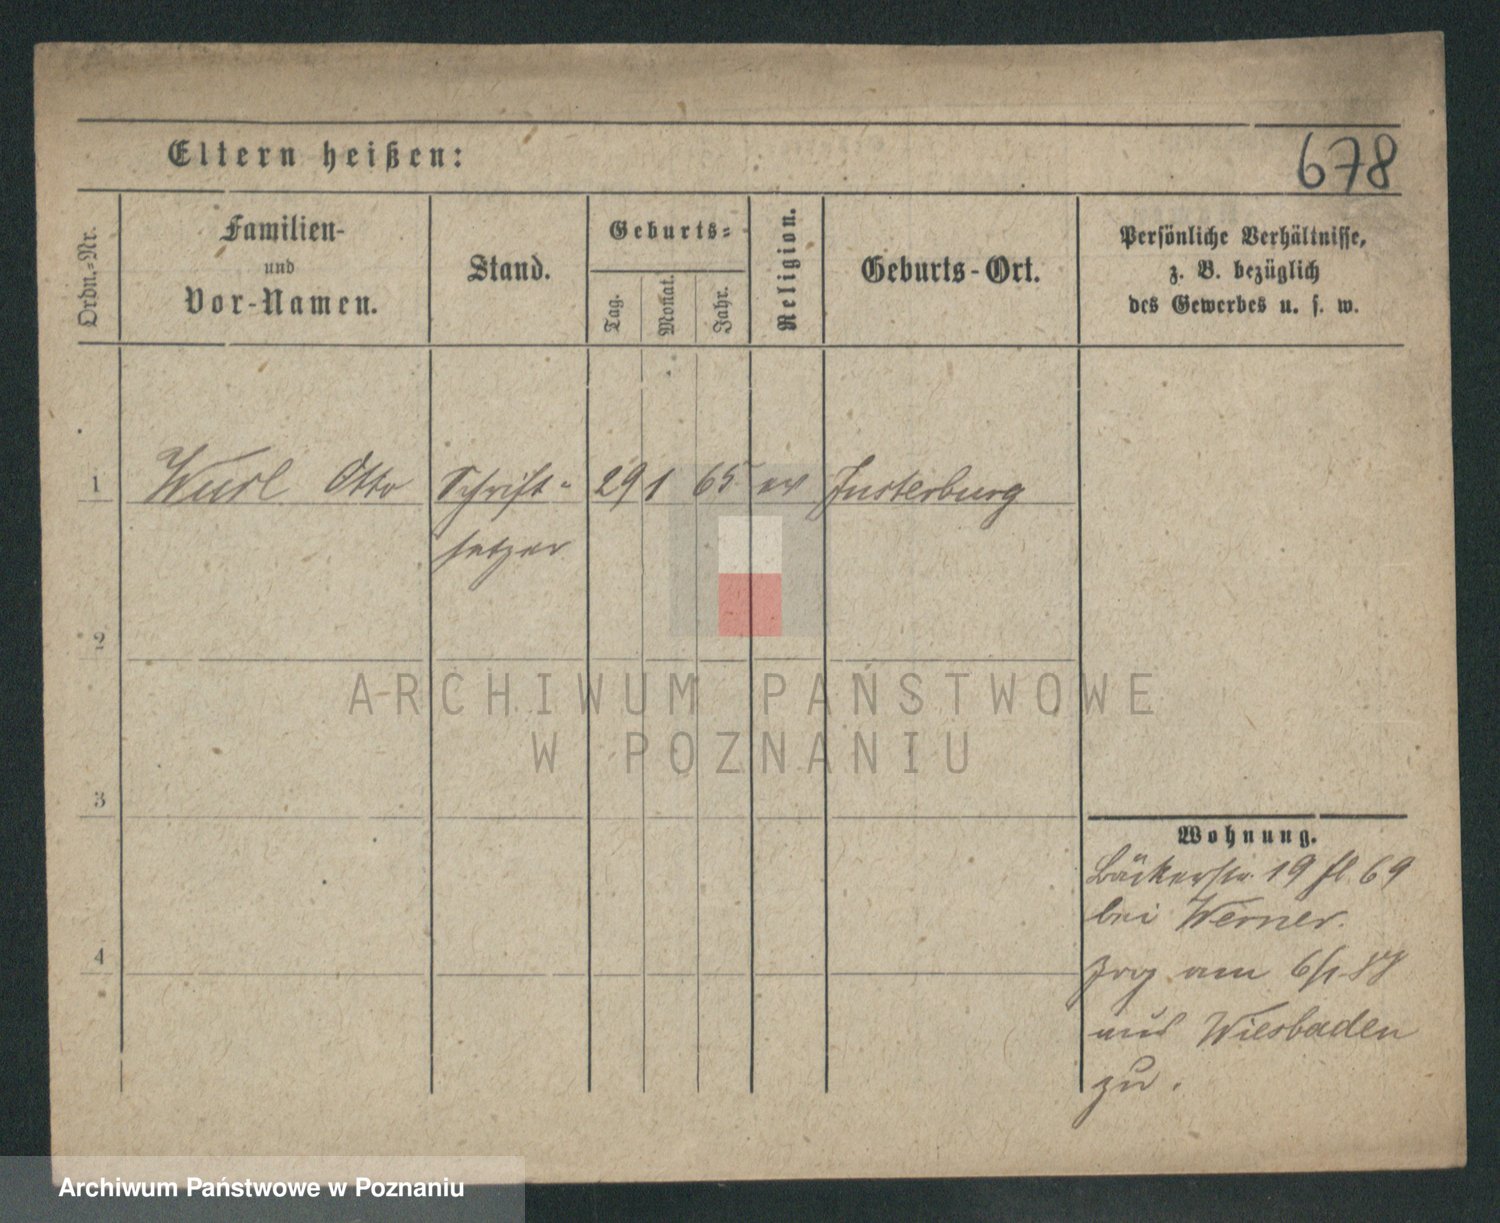 Eltern heißen:
678
Ordn.-Nr.
Familien-
und
Vor-Namen.
Stand.
Geburts-
Tag.
Monat.
Jahr.
Religion.
Geburts-Ort.
Persönliche Verhältnisse,
z. B. bezüglich
des Gewerbes u. s. w.
1 Wurl Otto Schrift- 29 1 65 ev Insterburg
setzer
2
ARCHIWUM PAŃSTWOWE
W POZNANIU
3
Wohnung.
Bäckerstr. 19 fl. 69
bei Werner.
4
Zog am 6/1
aus Wiesbaden
zu.
Archiwum Państwowe w Poznaniu